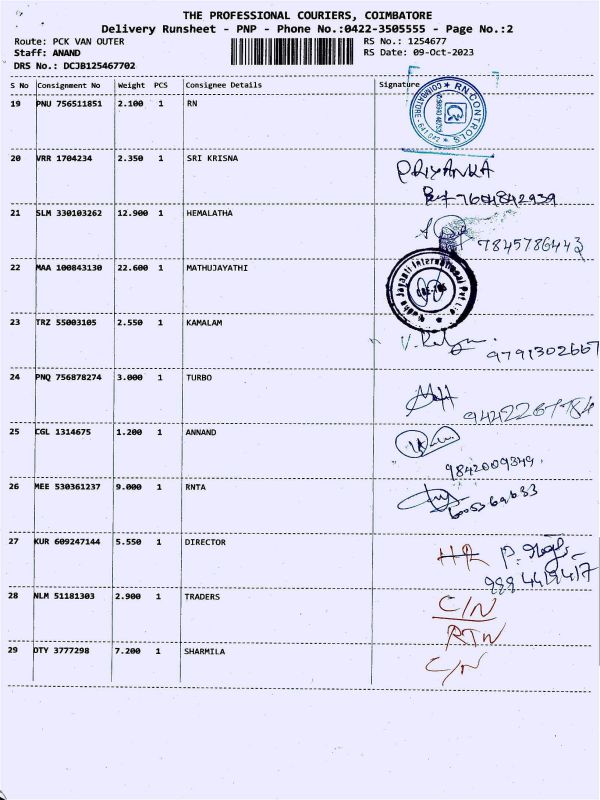 THE PROFESSIONAL COURIERS, COIMBATORE
Delivery Runsheet - PNP - Phone No.:0422-3505555 - Page No.:2
Route: PCK VAN OUTER RS No.: 1254677
Staff: ANAND RS Date: 09-Oct-2023
DRS No.: DCJB125467702
S No Consignment No Weight PCS Consignee Details Signature
19 PNU 756511851 2.100 1 RN RN CONTROLS COIMBATORE
20 VRR 1704234 2.350 1 SRI KRISNA PRIYANKA
7604842939
21 SLM 330103262 12.900 1 HEMALATHA
7845786443
22 MAA 100843130 22.600 1 MATHUJAYATHI Radha Jayanti International Pvt Ltd
23 TRZ 55003105 2.550 1 KAMALAM
9791302667
24 PNQ 756878274 3.000 1 TURBO
25 CGL 1314675 1.200 1 ANNAND
9842009349.
26 MEE 530361237 9.000 1 RNTA
27 KUR 609247144 5.550 1 DIRECTOR
28 NLM 51181303 2.900 1 TRADERS C/N
RTN
29 OTY 3777298 7.200 1 SHARMILA C/N